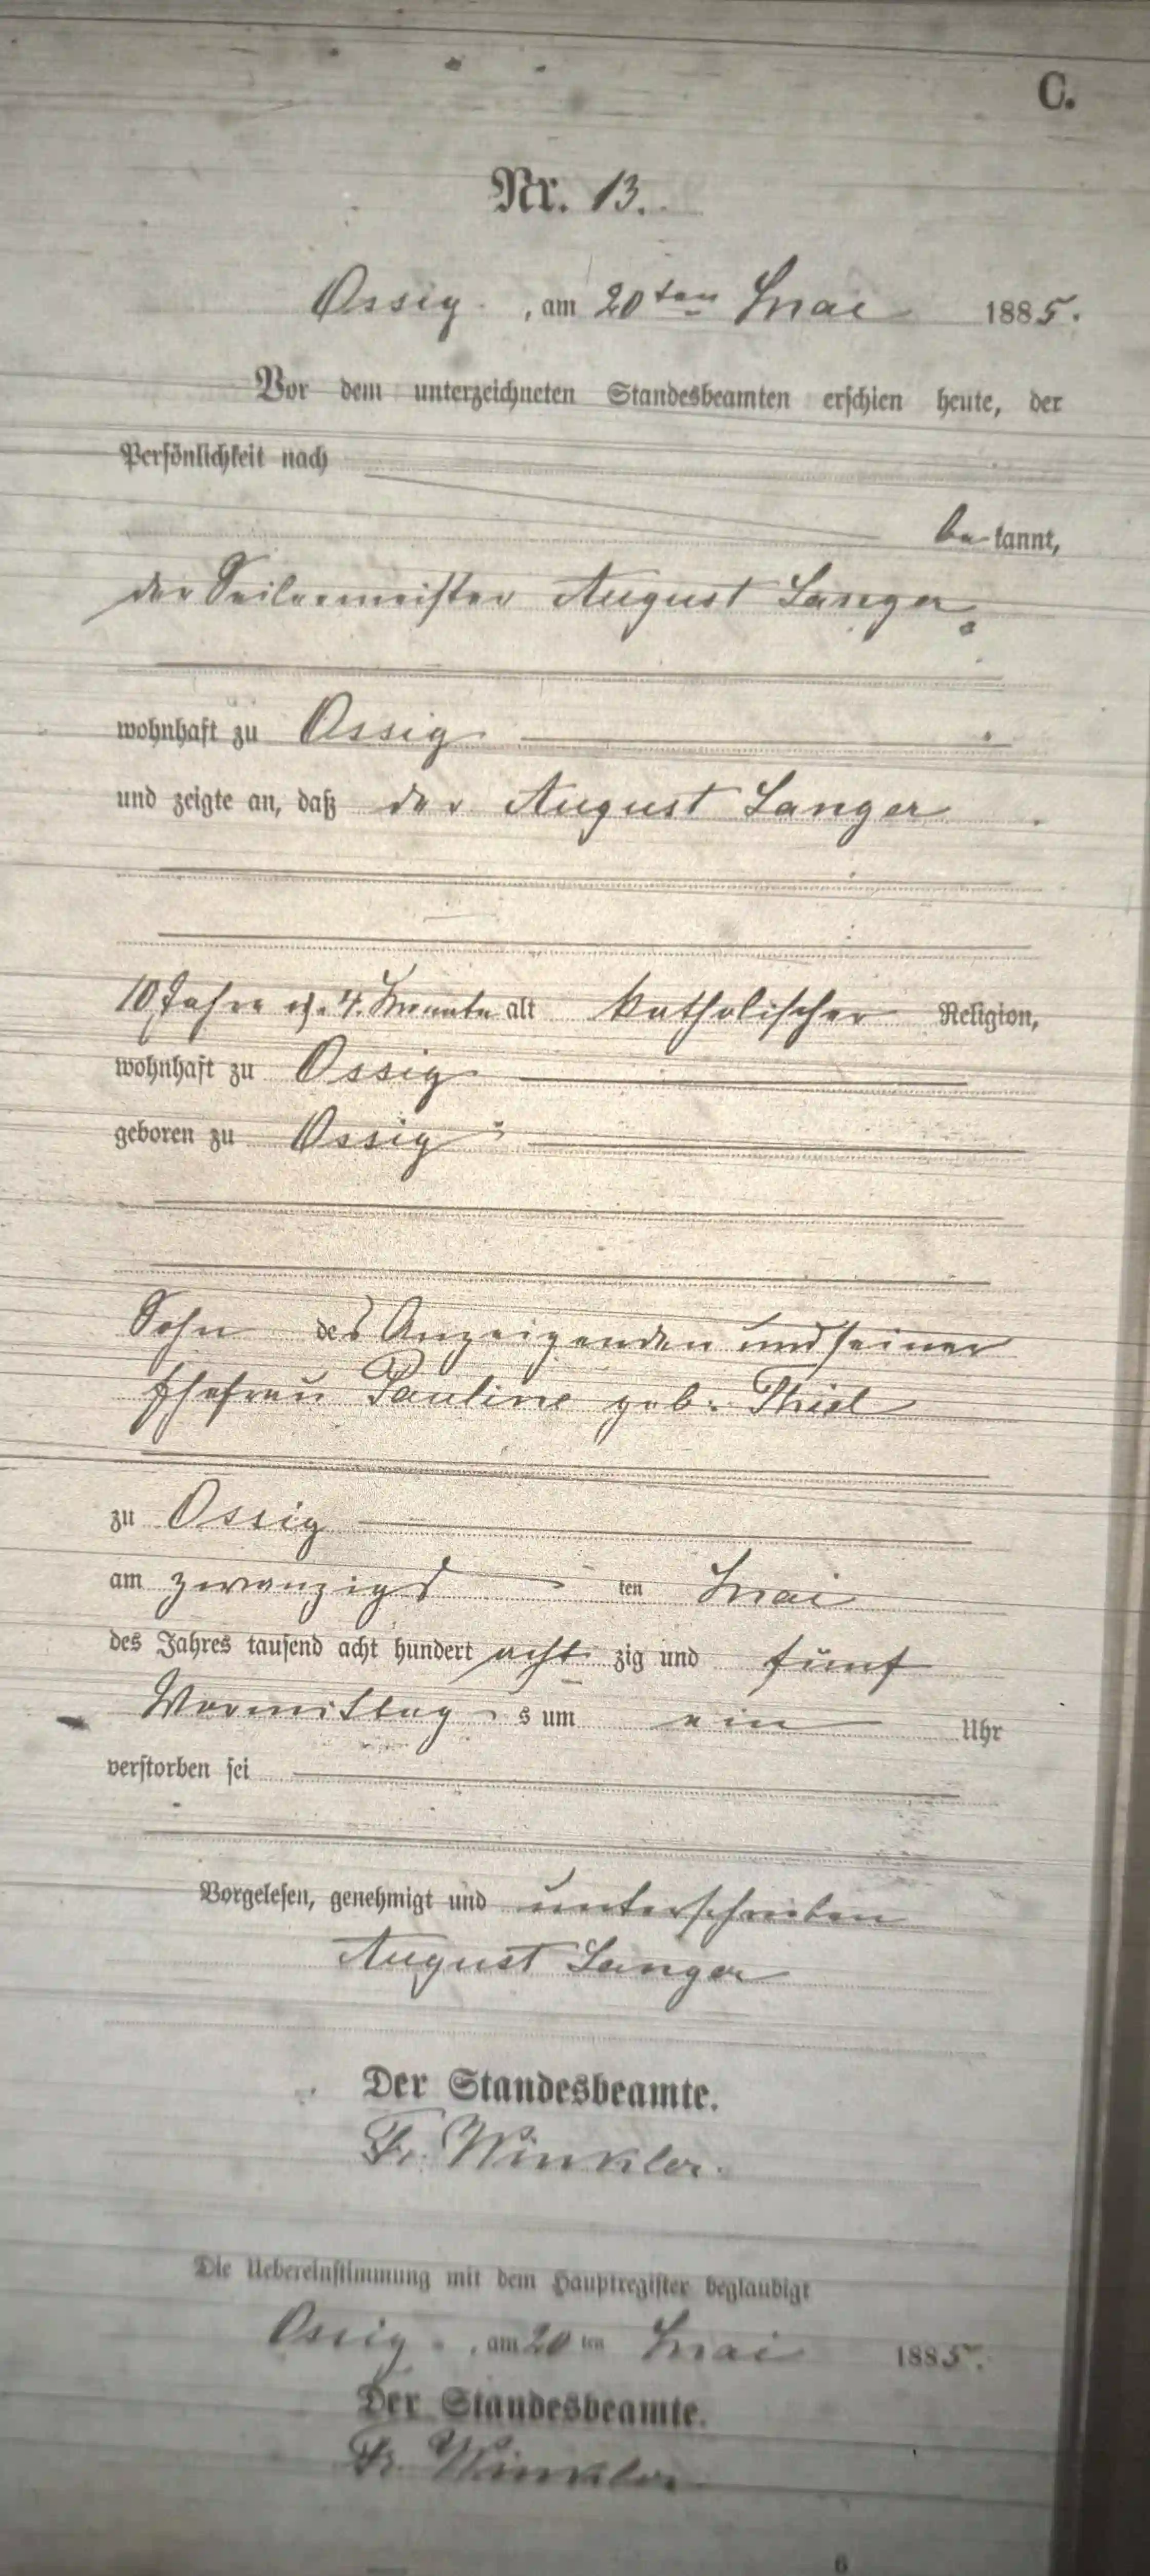 C.
Nr. 13.
Ossig, am 20ten Mai 1885.
Vor dem unterzeichneten Standesbeamten erschien heute, der
Persönlichkeit nach
bekannt,
der Seilermeister August Langer
wohnhaft zu Ossig
und zeigte an, daß der August Langer
10 Jahre 4 Monate alt katholischer Religion,
wohnhaft zu Ossig
geboren zu Ossig
Sohn des Anzeigenden und seiner
Ehefrau Pauline geb. Thiel
zu Ossig
am zwanzigsten Mai
des Jahres tausend acht hundert achtzig und fünf
Vormittags um ein Uhr
verstorben sei
Vorgelesen, genehmigt und unterschrieben
August Langer
Der Standesbeamte.
Fr. Winkler.
Die Uebereinstimmung mit dem Hauptregister beglaubigt
Ossig, am 20ten Mai 1885.
Der Standesbeamte.
Fr. Winkler
6